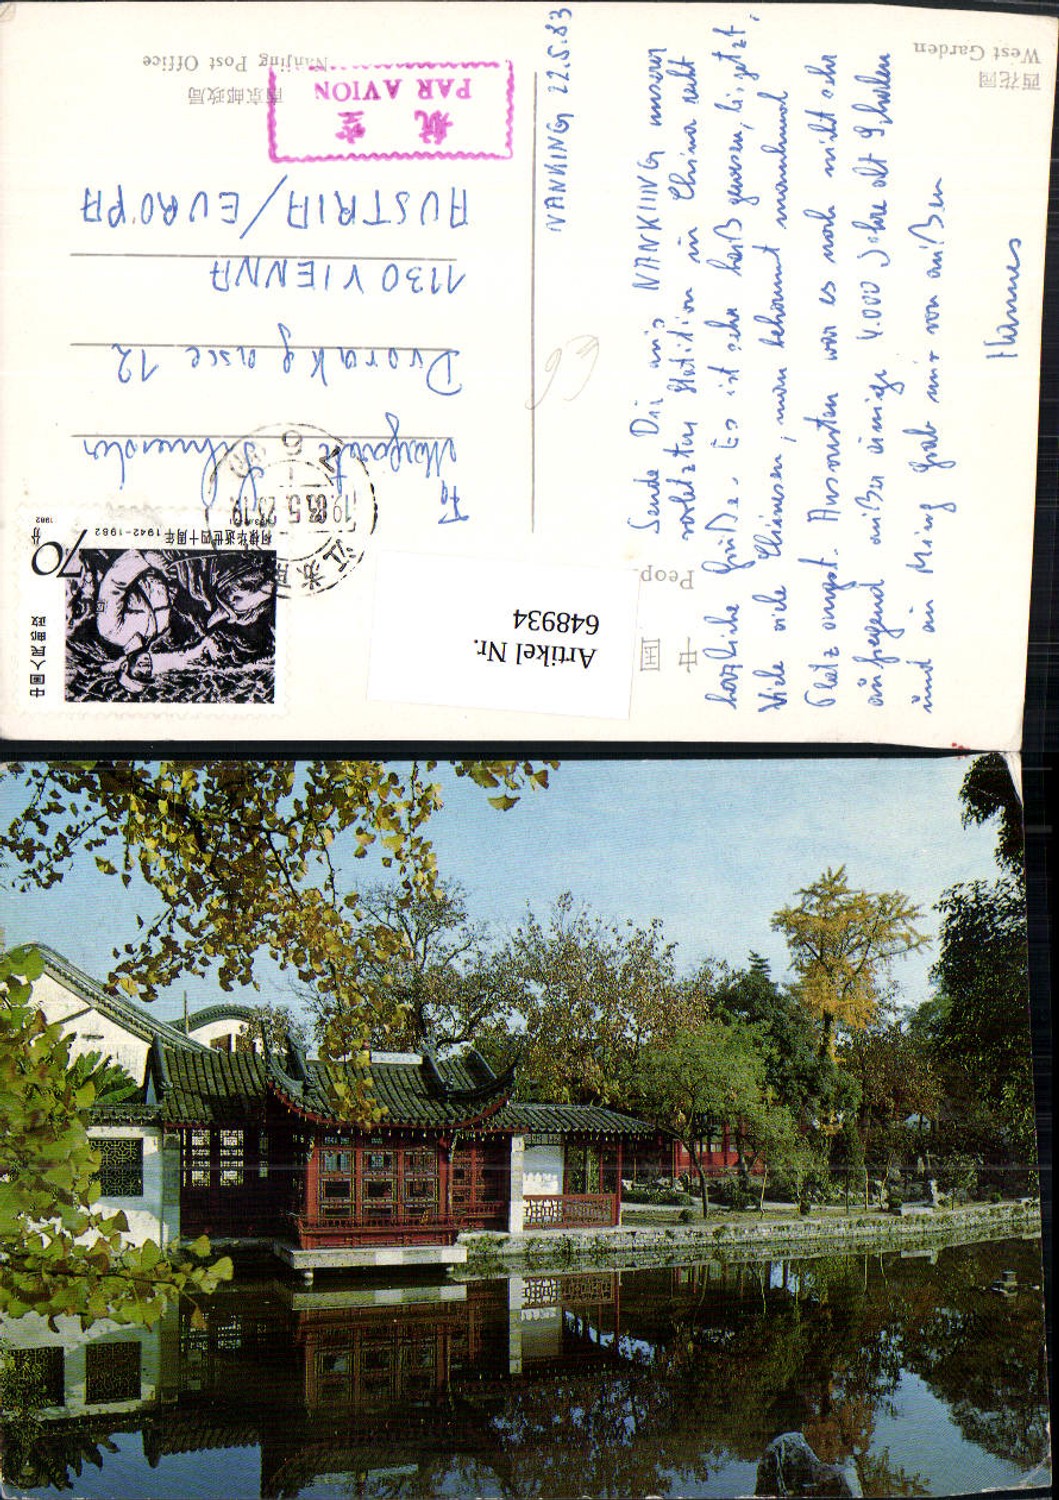 西花园
West Garden
南京邮政局
Nanjing Post Office
航 空
PAR AVION
NANKING 22.5.83
Sende Dir aus NANKING unserer
vorletzten Station in China recht
herzliche Grüße. Es ist sehr heiß gewesen, bis jetzt.
Viele viele Chinesen, man bekommt manchmal
Platz angst. Ansonsten war es noch nicht sehr
aufregend außer einige 4.000 Jahre alt
und ein Ming Grab nur von außen
Hannes
Margarete
Dvorakgasse 12
1130 VIENNA
AUSTRIA/EUROPA
中国
Peop
Artikel Nr.
648934
70分
1982
柯棣华逝世四十周年 1942-1982
中国人民邮政
江苏
1983.5.23.19